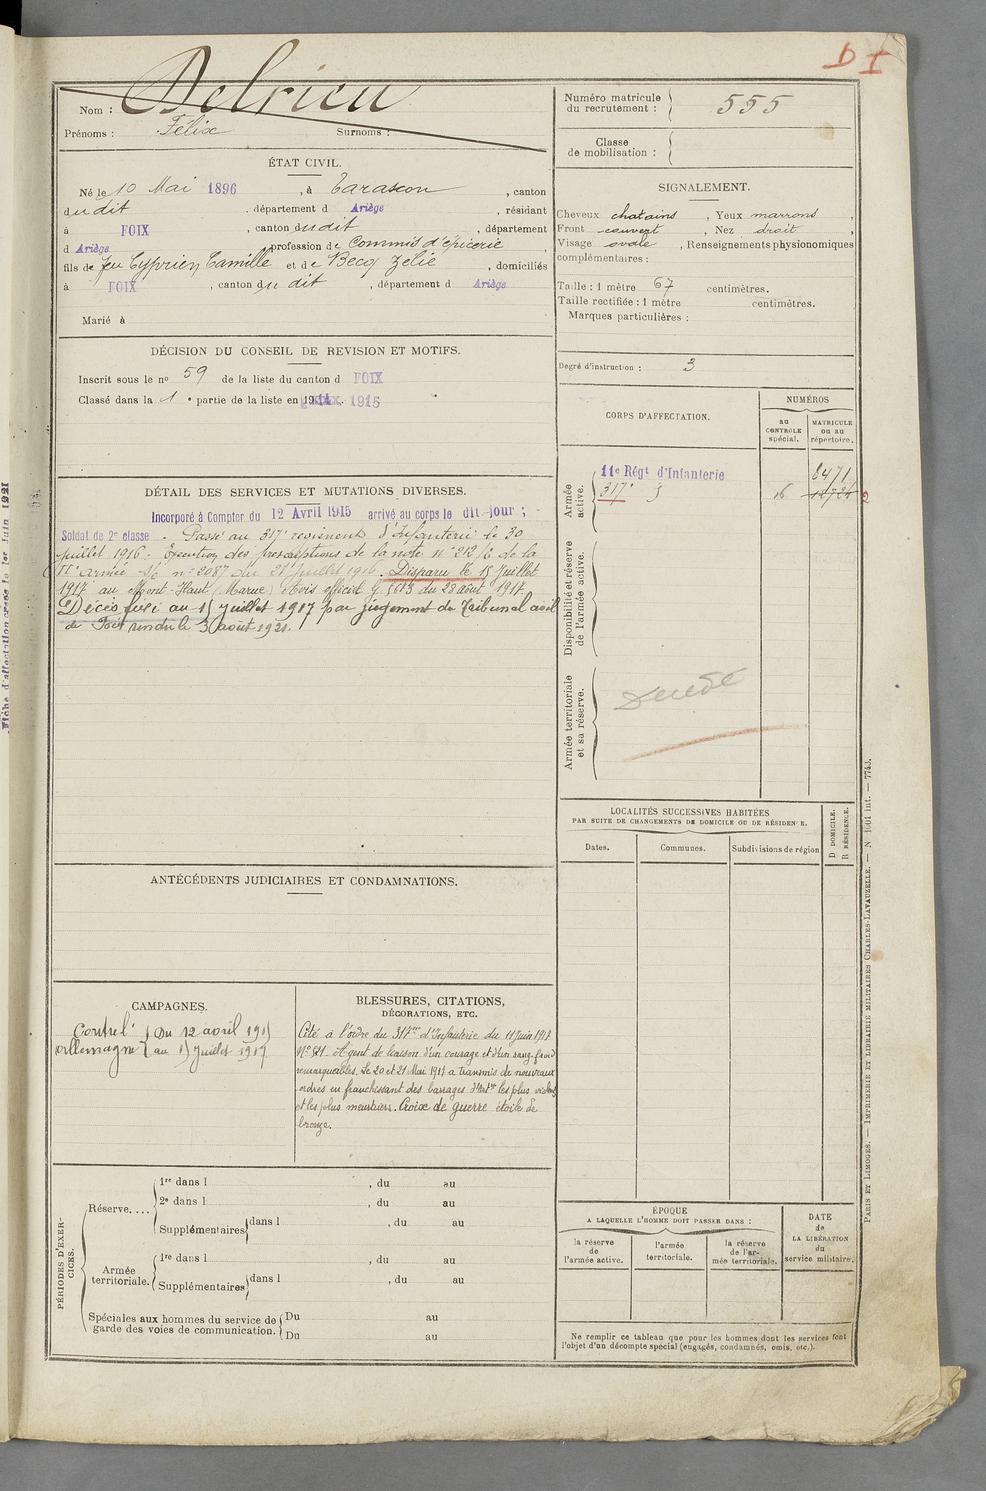 D I
Nom : Delrieu
Prénoms : Félix Surnoms :
ÉTAT CIVIL.
Né le 10 Mai 1896, à Tarascon, canton
dudit, département d Ariège, résidant
à FOIX, canton dudit, département
d Ariège, profession de Commis d'épicerie
fils de feu Cyprien Camille et de Becq Zélie, domiciliés
à FOIX, canton du dit, département d Ariège
Marié à
DÉCISION DU CONSEIL DE REVISION ET MOTIFS.
Inscrit sous le nº 59 de la liste du canton d FOIX
Classé dans la 1e partie de la liste en 1915
DÉTAIL DES SERVICES ET MUTATIONS DIVERSES.
Incorporé à Compter du 12 Avril 1915 arrivé au corps le dit jour ;
Soldat de 2e classe. Passé au 317e regiment d'Infanterie le 30
juillet 1916. Execution des prescriptions de la note nº 212 /6 de la
IIe Armée S/c nº 2087 du 21 Juillet 1916. Disparu le 15 Juillet
1917 au Mont-Haut (Marne) Avis officiel du 28 août 1917
Décès fixé au 15 juillet 1917 par jugement du Tribunal civil
de Foix rendu le 3 août 1921.
ANTÉCÉDENTS JUDICIAIRES ET CONDAMNATIONS.
CAMPAGNES.
Contre l' { Du 12 avril 1915
Allemagne { au 15 juillet 1917
BLESSURES, CITATIONS,
DÉCORATIONS, ETC.
Cité à l'ordre du 317me d'Infanterie du 11 juin 1917
Nº 521. Agent de liaison d'un courage et d'un sang-froid
remarquables. Le 20 et 21 Mai 1917 a transmis de nouveaux
ordres en franchissant des barrages d'Arte les plus violents
et les plus meurtriers. Croix de guerre étoile de
bronze.
PÉRIODES D'EXERCICES.
Réserve....
1re dans l , du au
2e dans l , du au
Supplémentaires dans l , du au
Armée
territoriale.
1re dans l , du au
Supplémentaires dans l , du au
Spéciales aux hommes du service de
garde des voies de communication.
Du au
Du au
Numéro matricule
du recrutement : 555
Classe
de mobilisation :
SIGNALEMENT.
Cheveux chatains, Yeux marrons,
Front couvert, Nez droit,
Visage ovale, Renseignements physionomiques
complémentaires :
Taille : 1 mètre 67 centimètres.
Taille rectifiée : 1 mètre centimètres.
Marques particulières :
Degré d'instruction : 3
CORPS D'AFFECTATION.
NUMÉROS
au
CONTROLE
spécial.
MATRICULE
ou au
répertoire.
Armée
active.
11e Régt d'Infanterie 8471
317e 16
Disponibilité et réserve
de l'armée active.
Armée territoriale
et sa réserve.
Décédé
LOCALITÉS SUCCESSIVES HABITÉES
PAR SUITE DE CHANGEMENTS DE DOMICILE OU DE RÉSIDENCE.
Dates.
Communes.
Subdivisions de région
D DOMICILE.
R RÉSIDENCE.
ÉPOQUE
A LAQUELLE L'HOMME DOIT PASSER DANS :
la réserve
de
l'armée active.
l'armée
territoriale.
la réserve
de l'armée territoriale.
DATE
de
LA LIBÉRATION
du
service militaire.
Ne remplir ce tableau que pour les hommes dont les services font
l'objet d'un décompte spécial (engagés, condamnés, omis, etc.).
PARIS ET LIMOGES. — IMPRIMERIE ET LIBRAIRIE MILITAIRES CHARLES-LAVAUZELLE. — N 1601 int. — 7743.